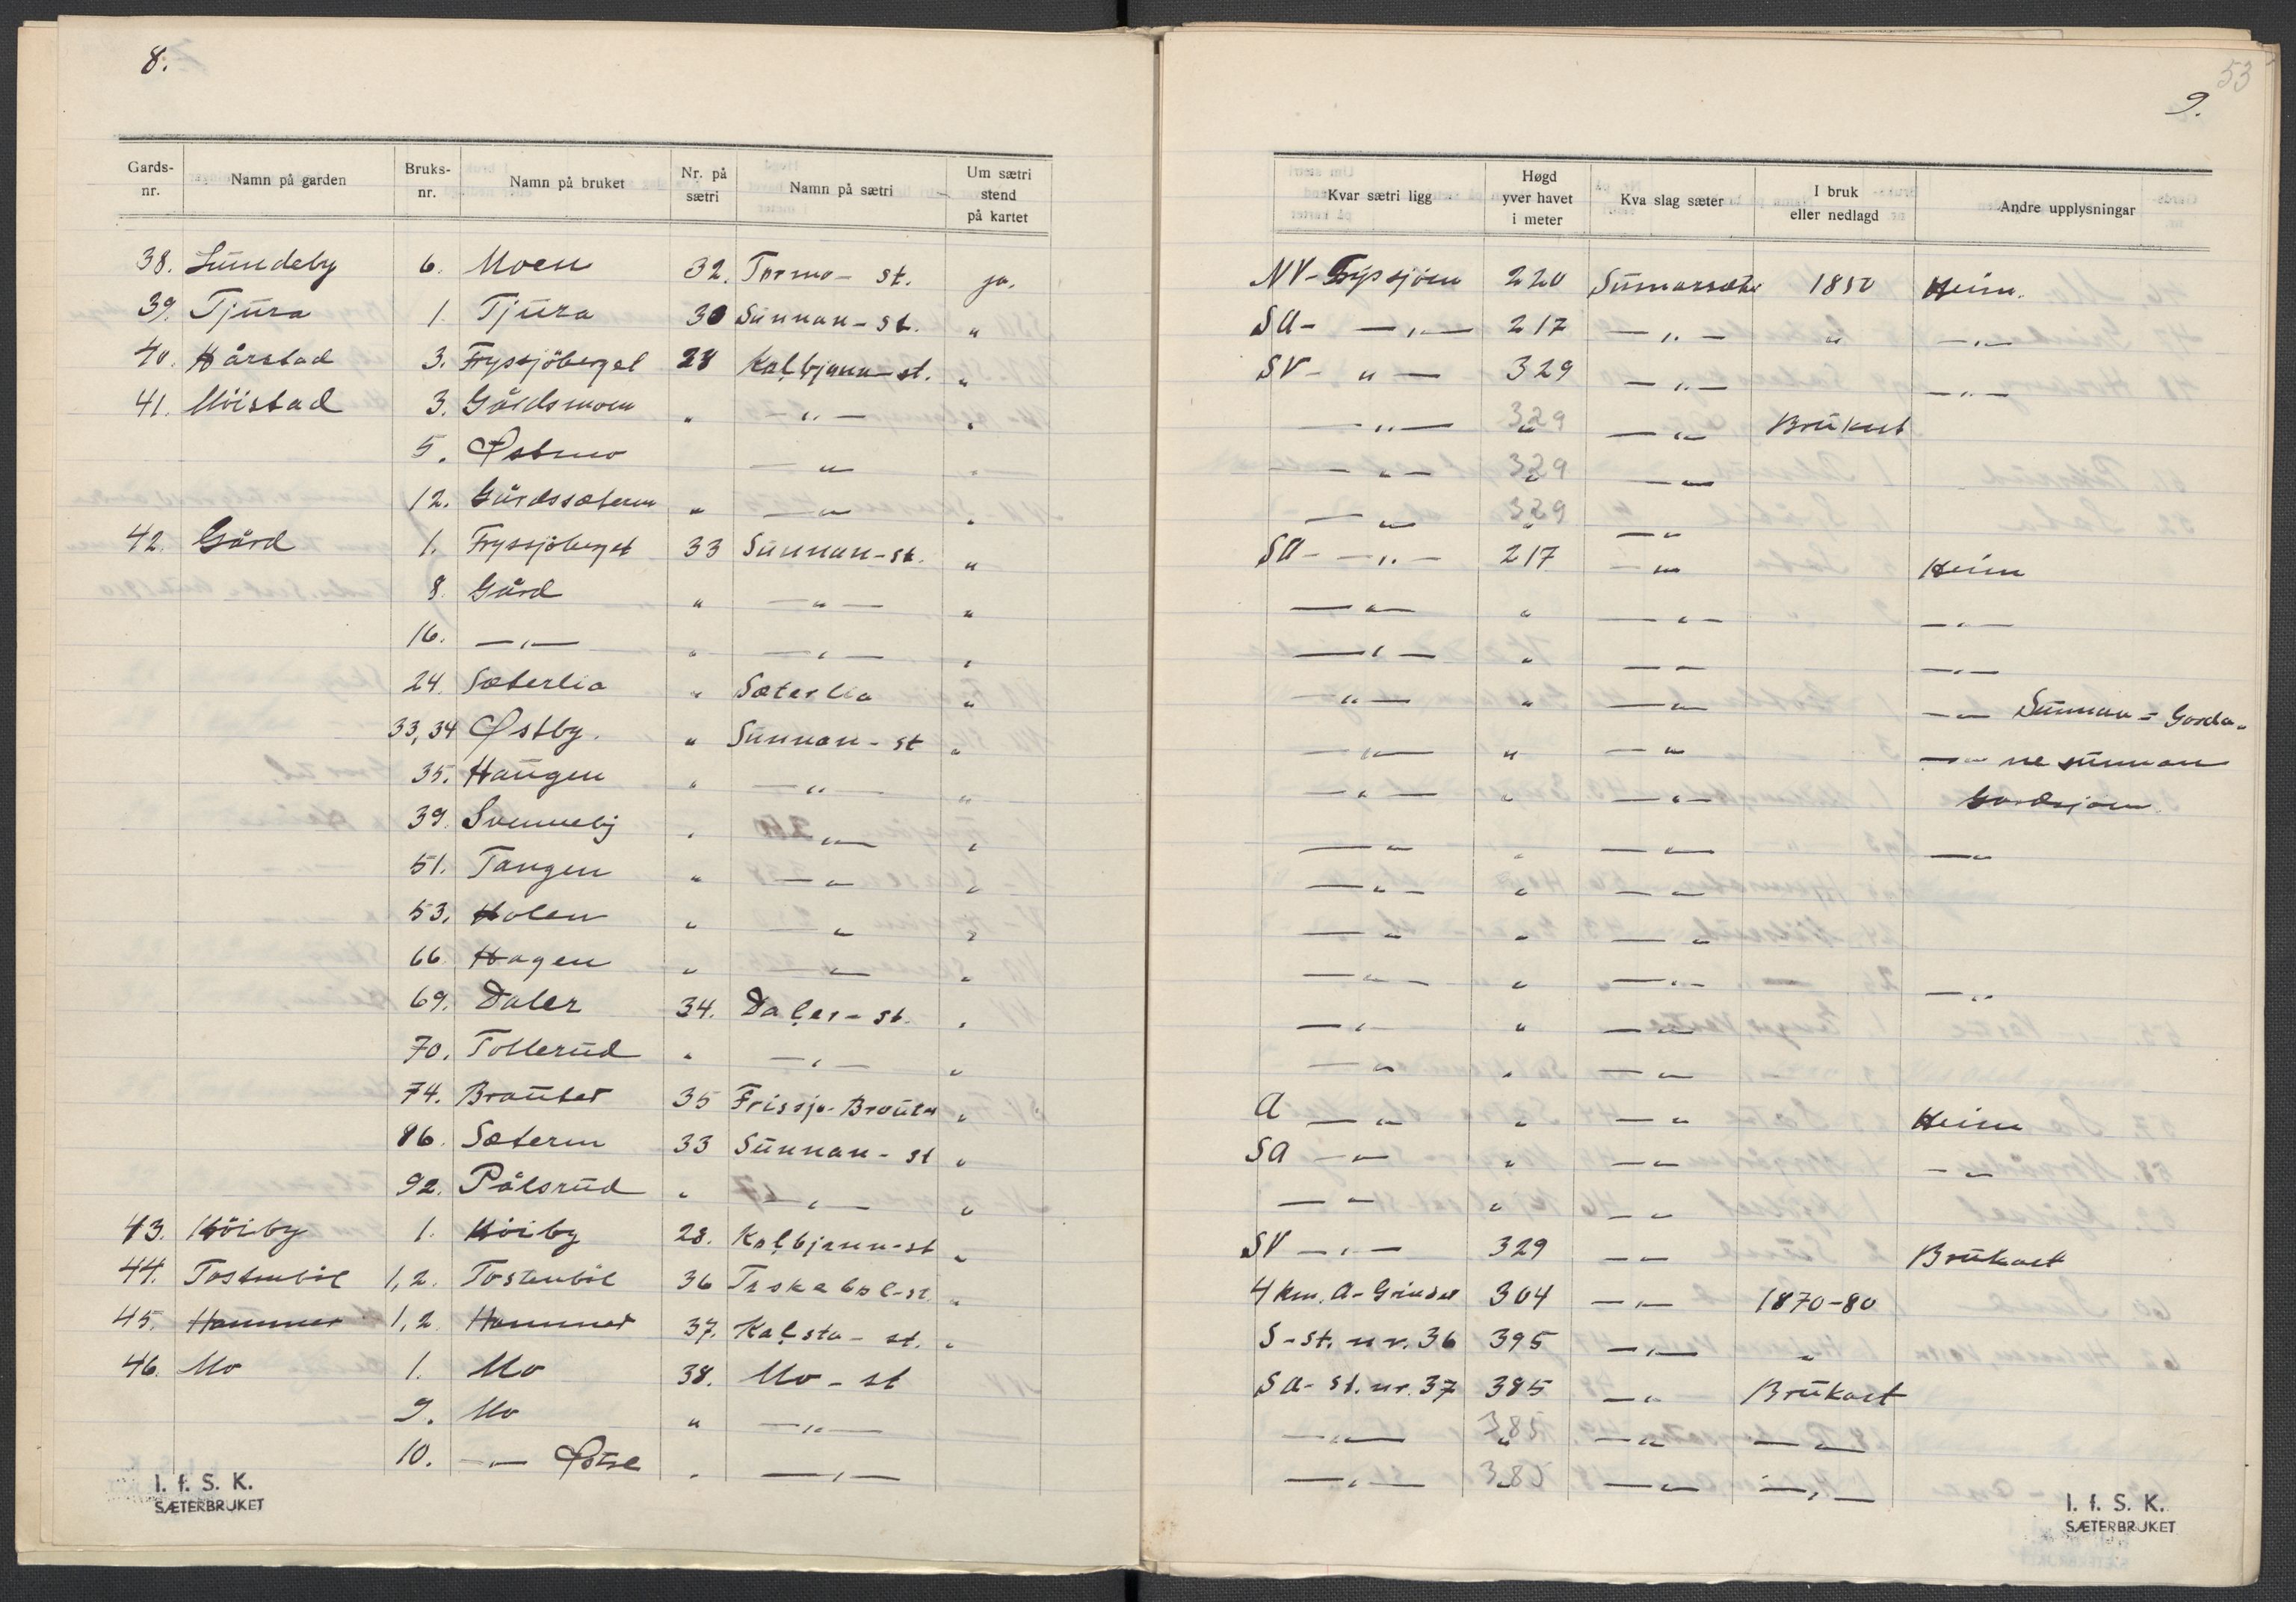 8.
Gards-nr. Namn på garden Bruks-nr. Namn på bruket Nr. på sætri Namn på sætri Um sætri stend på kartet
38. Lundeby 6. Moen 32. Tormo - st. ja.
39. Tjura 1. Tjura 30 Sunnan - st. "
40. Hårstad 3. Fryssjöberget 28 Kolbjønn - st. "
41. Möistad 3. Gårdsmoen " - " - "
5. Østmo - " - "
12. Gårdssæteren " - " - "
42. Gård 1. Fryssjöberget 33 Sunnan - st. "
8. Gård " - " - "
16. - " - " - " - "
24. Sæterlia " Sæterlia "
33, 34 Østby. " Sunnan - st "
35. Haugen " - " - "
39. Svenneby " - " - "
51. Tangen " - " - "
53. Holen " - " - "
66. Hagen " - " - "
69. Daler 34. Daler - st. "
70. Tollerud " - " - "
74. Brauter 35 Frissjø-Brauter "
86. Sæteren 33 Sunnan - st "
92. Pålsrud " - " - "
43. Höiby 1. Höiby 28. Kolbjønn-st "
44. Tostenböl 1, 2. Tostenböl 36 Taskebøl-st. "
45. Hammer 1, 2 Hammer 37. Kalsta - st. "
46. Mo 1. Mo 38. Mo - st
9. Mo " - " -
10. - " - Østre " - " -
I. f. S. K.
SÆTERBRUKET
53
9.
Kvar sætri ligg Høgd yver havet i meter Kva slag sæter I bruk eller nedlagd Andre upplysningar
NV - Fryssjøen 220 Sumarsæter 1850 Heim.
SA - - " - 217 - " - " - " -
SV - " - 329 - " - - " -
- " - 329 " - " - Brukast
- " - 329 " - " -
- " - 329 " - " -
SA - - " - 217 - " - Heim
- " - " - " - - " -
- " - " - " - - " -
- " - " - " - - " - Sunnan = Garda-
- " - " - " - - " - ne sunnan
- " - " - " - Gardsjøen.
- " - " - " - - " -
- " - " - " -
- " - " - " -
- " - " - " - - " -
- " - " - " -
- " - " - " -
A - " - " - " - Heim
SA - " - " - " - - " -
- " - " - " -
SV - " - 329 - " - Brukast
4 km. A - Grinder 304 - " - 1870-80
S - st. nr. 36 395 - " - "
SA - st. nr. 37 385 - " - Brukast
- " - 385 " - " - - " -
- " - 385 - " - - " -
I. f. S. K.
SÆTERBRUKET